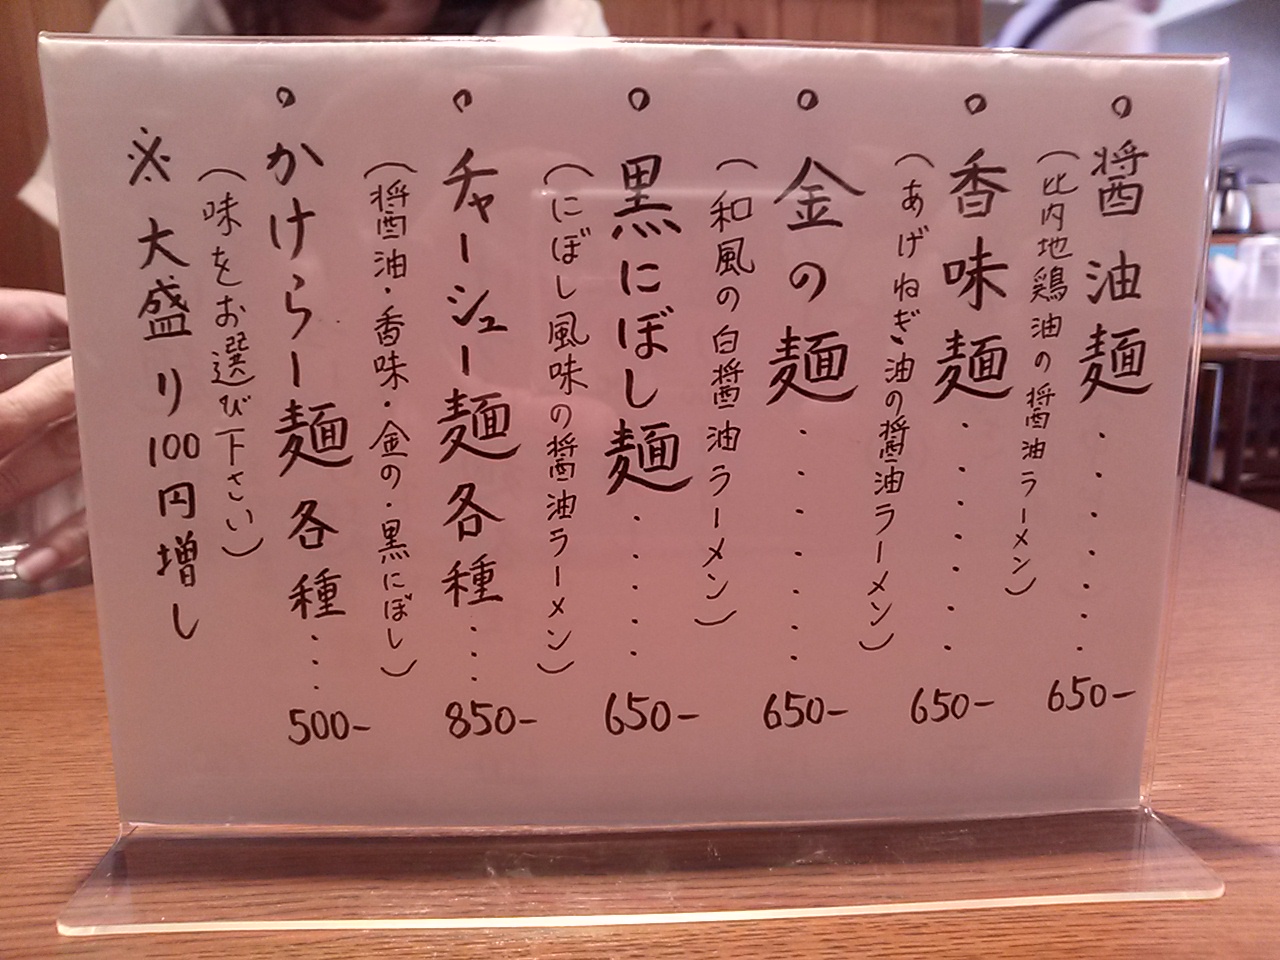 ○醤油麺・・・・・・650-
(比内地鶏油の醤油ラーメン)
○香味麺・・・・・・650-
(あげねぎ油の醤油ラーメン)
○金の麺・・・・・・650-
(和風の白醤油ラーメン)
○黒にぼし麺・・・・650-
(にぼし風味の醤油ラーメン)
○チャーシュー麺各種・・・850-
(醤油・香味・金の・黒にぼし)
○かけらー麺各種・・・500-
(味をお選び下さい)
※大盛り100円増し